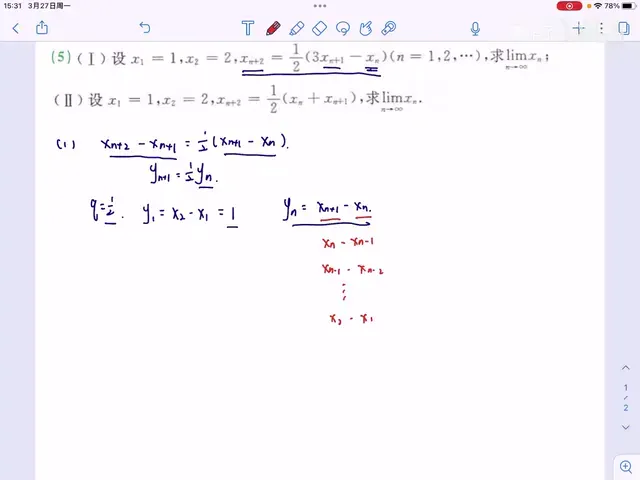 15:31 3月27日周一
78%
(5)(Ⅰ)设 x₁ = 1,x₂ = 2,xₙ₊₂ = 1/2(3xₙ₊₁ − xₙ)(n = 1,2,…),求lim n→∞ xₙ;
(Ⅱ)设 x₁ = 1,x₂ = 2,xₙ₊₂ = 1/2(xₙ + xₙ₊₁),求lim n→∞ xₙ.
(1) xₙ₊₂ − xₙ₊₁ = 1/2(xₙ₊₁ − xₙ).
yₙ₊₁ = 1/2 yₙ.
q = 1/2. y₁ = x₂ − x₁ = 1 yₙ = xₙ₊₁ − xₙ.
xₙ − xₙ₋₁
xₙ₋₁ − xₙ₋₂
⋮
x₂ − x₁
1
2